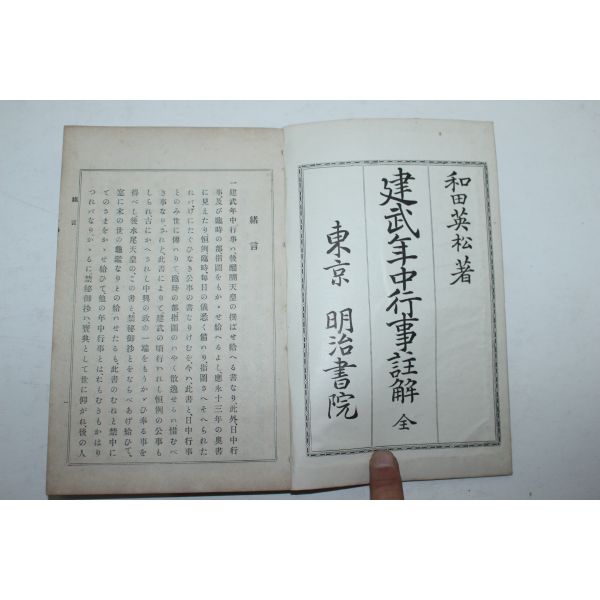 和田英松著
建武年中行事註解 全
東京 明治書院
緒言
一建武年中行事ハ後醍醐天皇の撰ばせ給へる書なり此外、日中行
事及び臨時の部指圖をもかゝせ給へるよし、應永十三年の奥書
に見えたり恒例臨時毎日の儀悉く備ハり、指圖さへそへられた
れバげにたぐひなき公事の書なりけむを、今ハ此書と、日中行事
とのみ世に傳ハりて、臨時の部指圖のハやく散逸せるハ惜むべ
き事なりされど、此書によりて、建武の頃行ハれし恒例の公事も
しられ、古にかへされし中興の政の一端をもうかゞひ奉る事を
得べし後水尾天皇の、この書と禁秘御抄とをならべあげ給ひて、
寔に末の世の龜鑑なりとの給ハせたるも、此書のむねと禁中に
てのさまをかゝせ給ひて、他の年中行事とは、たもむきもかはり
つれバなりかゝるに禁秘御抄ハ、寶典として世に仰がれ、後の人
緒言
一